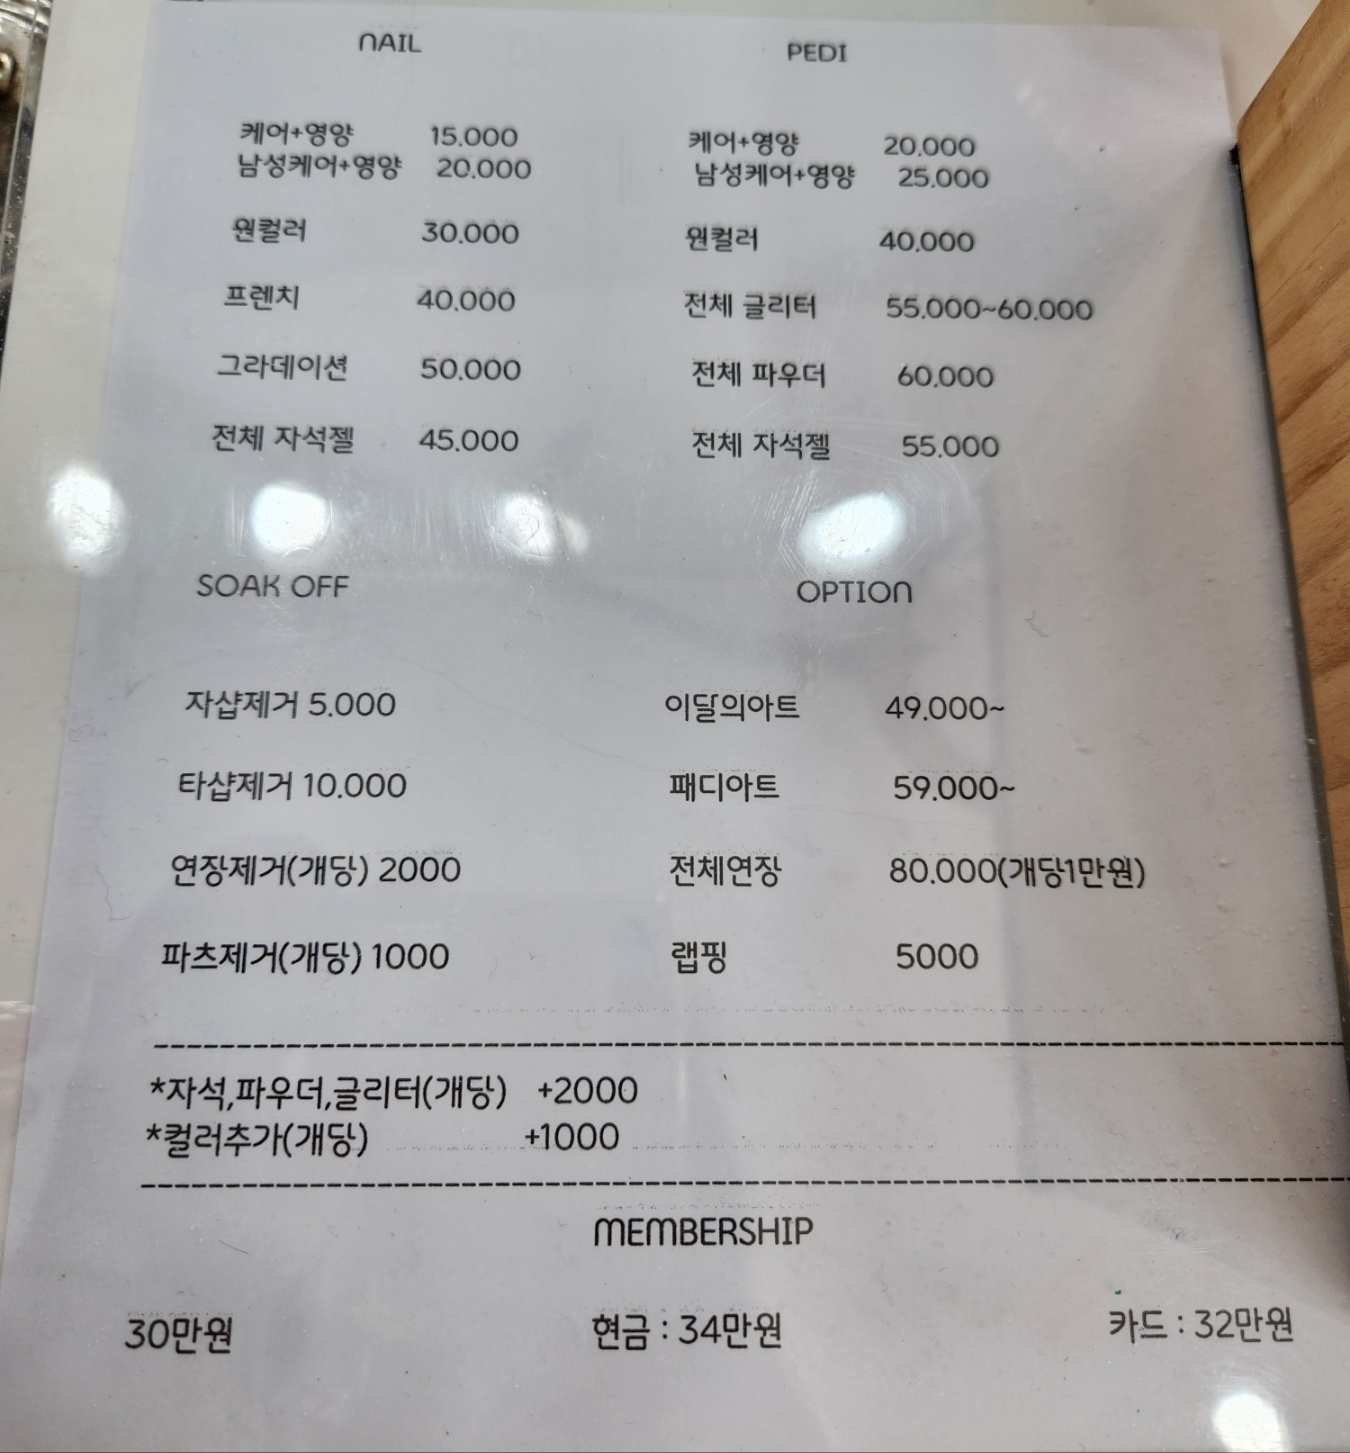 NAIL
케어+영양 15.000
남성케어+영양 20.000
원컬러 30.000
프렌치 40.000
그라데이션 50.000
전체 자석젤 45.000
PEDI
케어+영양 20.000
남성케어+영양 25.000
원컬러 40.000
전체 글리터 55.000~60.000
전체 파우더 60.000
전체 자석젤 55.000
SOAK OFF
자샵제거 5.000
타샵제거 10.000
연장제거(개당) 2000
파츠제거(개당) 1000
OPTION
이달의아트 49.000~
패디아트 59.000~
전체연장 80.000(개당1만원)
랩핑 5000
*자석,파우더,글리터(개당) +2000
*컬러추가(개당) +1000
MEMBERSHIP
30만원 현금 : 34만원 카드 : 32만원